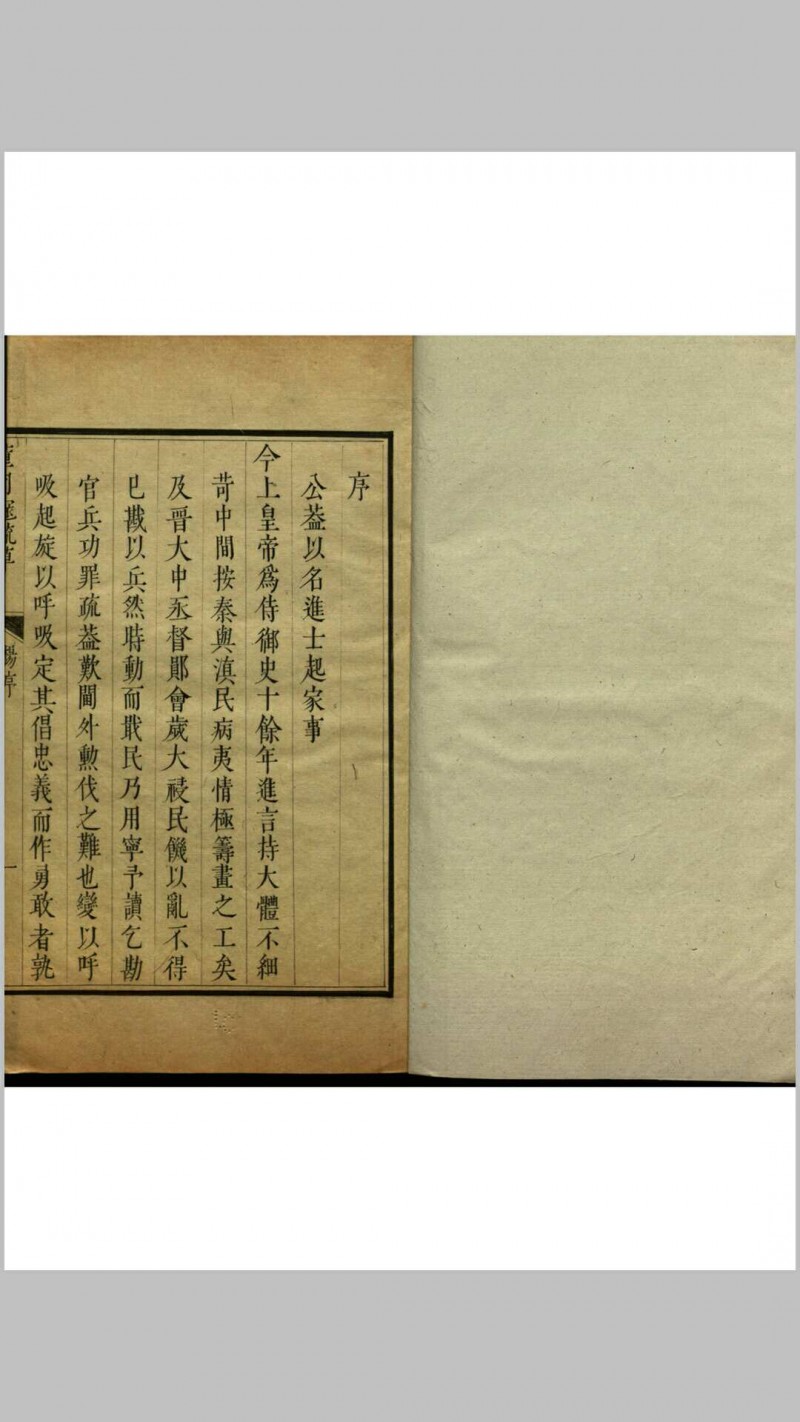 序
公葢以名進士起家事
今上皇帝爲侍御史十餘年進言持大體不細
苛中間按秦與滇民病夷情極籌畫之工矣
及晉大中丞督鄖會歲大祲民饑以亂不得
已戡以兵然時動而戢民乃用寧予讀乞勘
官兵功罪疏葢歎閫外勲伐之難也變以呼
吸起旋以呼吸定其倡忠義而作勇敢者孰
楊序
一